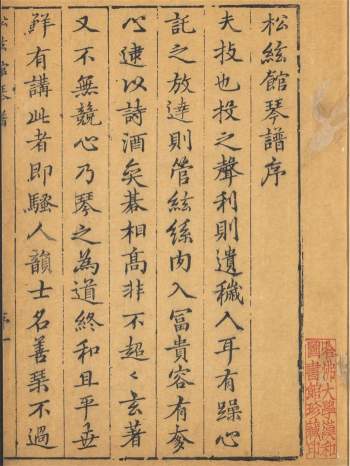 松絃館琴譜序
夫技也投之聲利則遺穢入耳有躁心
託之放達則管絃絲肉入冨貴容有奓
心逮以詩酒矣棊相髙非不超〻玄著
又不無競心乃琴之為道終和且平盖
鮮有講此者即騷人韻士名善琹不過
松絃館琴譜
序
哈佛大學漢和
圖書館珍藏印